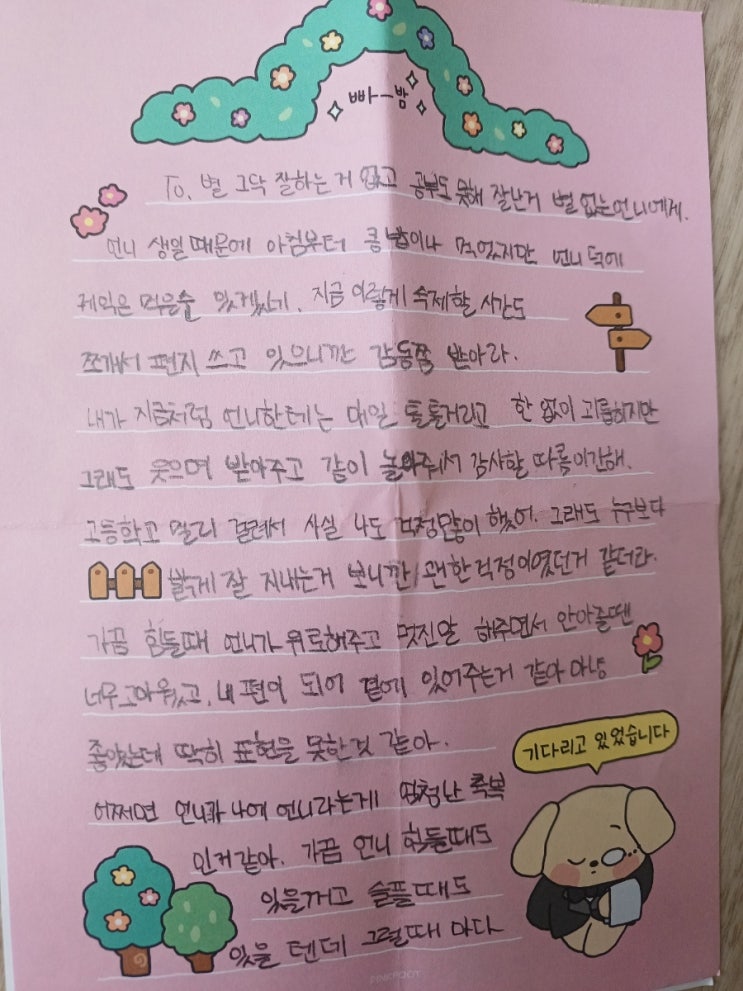 빠-밤
To. 별 그닥 잘하는 거 없고 공부도 못해 잘난거 별 없는 언니에게.
언니 생일 때문에 아침부터 콩밥이나 먹었지만 언니 덕에
케익은 먹을수 있겠찌. 지금 이렇게 숙제할 시간도
쪼개서 편지 쓰고 있으니깐 감동쫌 받아라.
내가 지금처럼 언니한테는 매일 툴툴거리고 한 없이 괴롭히지만
그래도 웃으며 받아주고 같이 놀아줘서 감사할 따름이긴해.
고등학고 멀리 걸려서 사실 나도 걱정많이 했어. 그래도 누구보다
밝게 잘 지내는거 보니깐 괜한 걱정이였던거 같더라.
가끔 힘들때 언니가 위로해주고 멋진말 해주면서 안아줄땐
너무 고마웠고, 내 편이 되어 곁에 있어주는거 같아 마냥
좋았는데 딱히 표현을 못한것 같아.
기다리고 있었습니다
어쩌면 언니가 나에 언니라는게 엄청난 축복
인거같아. 가끔 언니 힘들때도
있을꺼고 슬플때도
있을 텐데 그럴때 마다
PINKFOOT